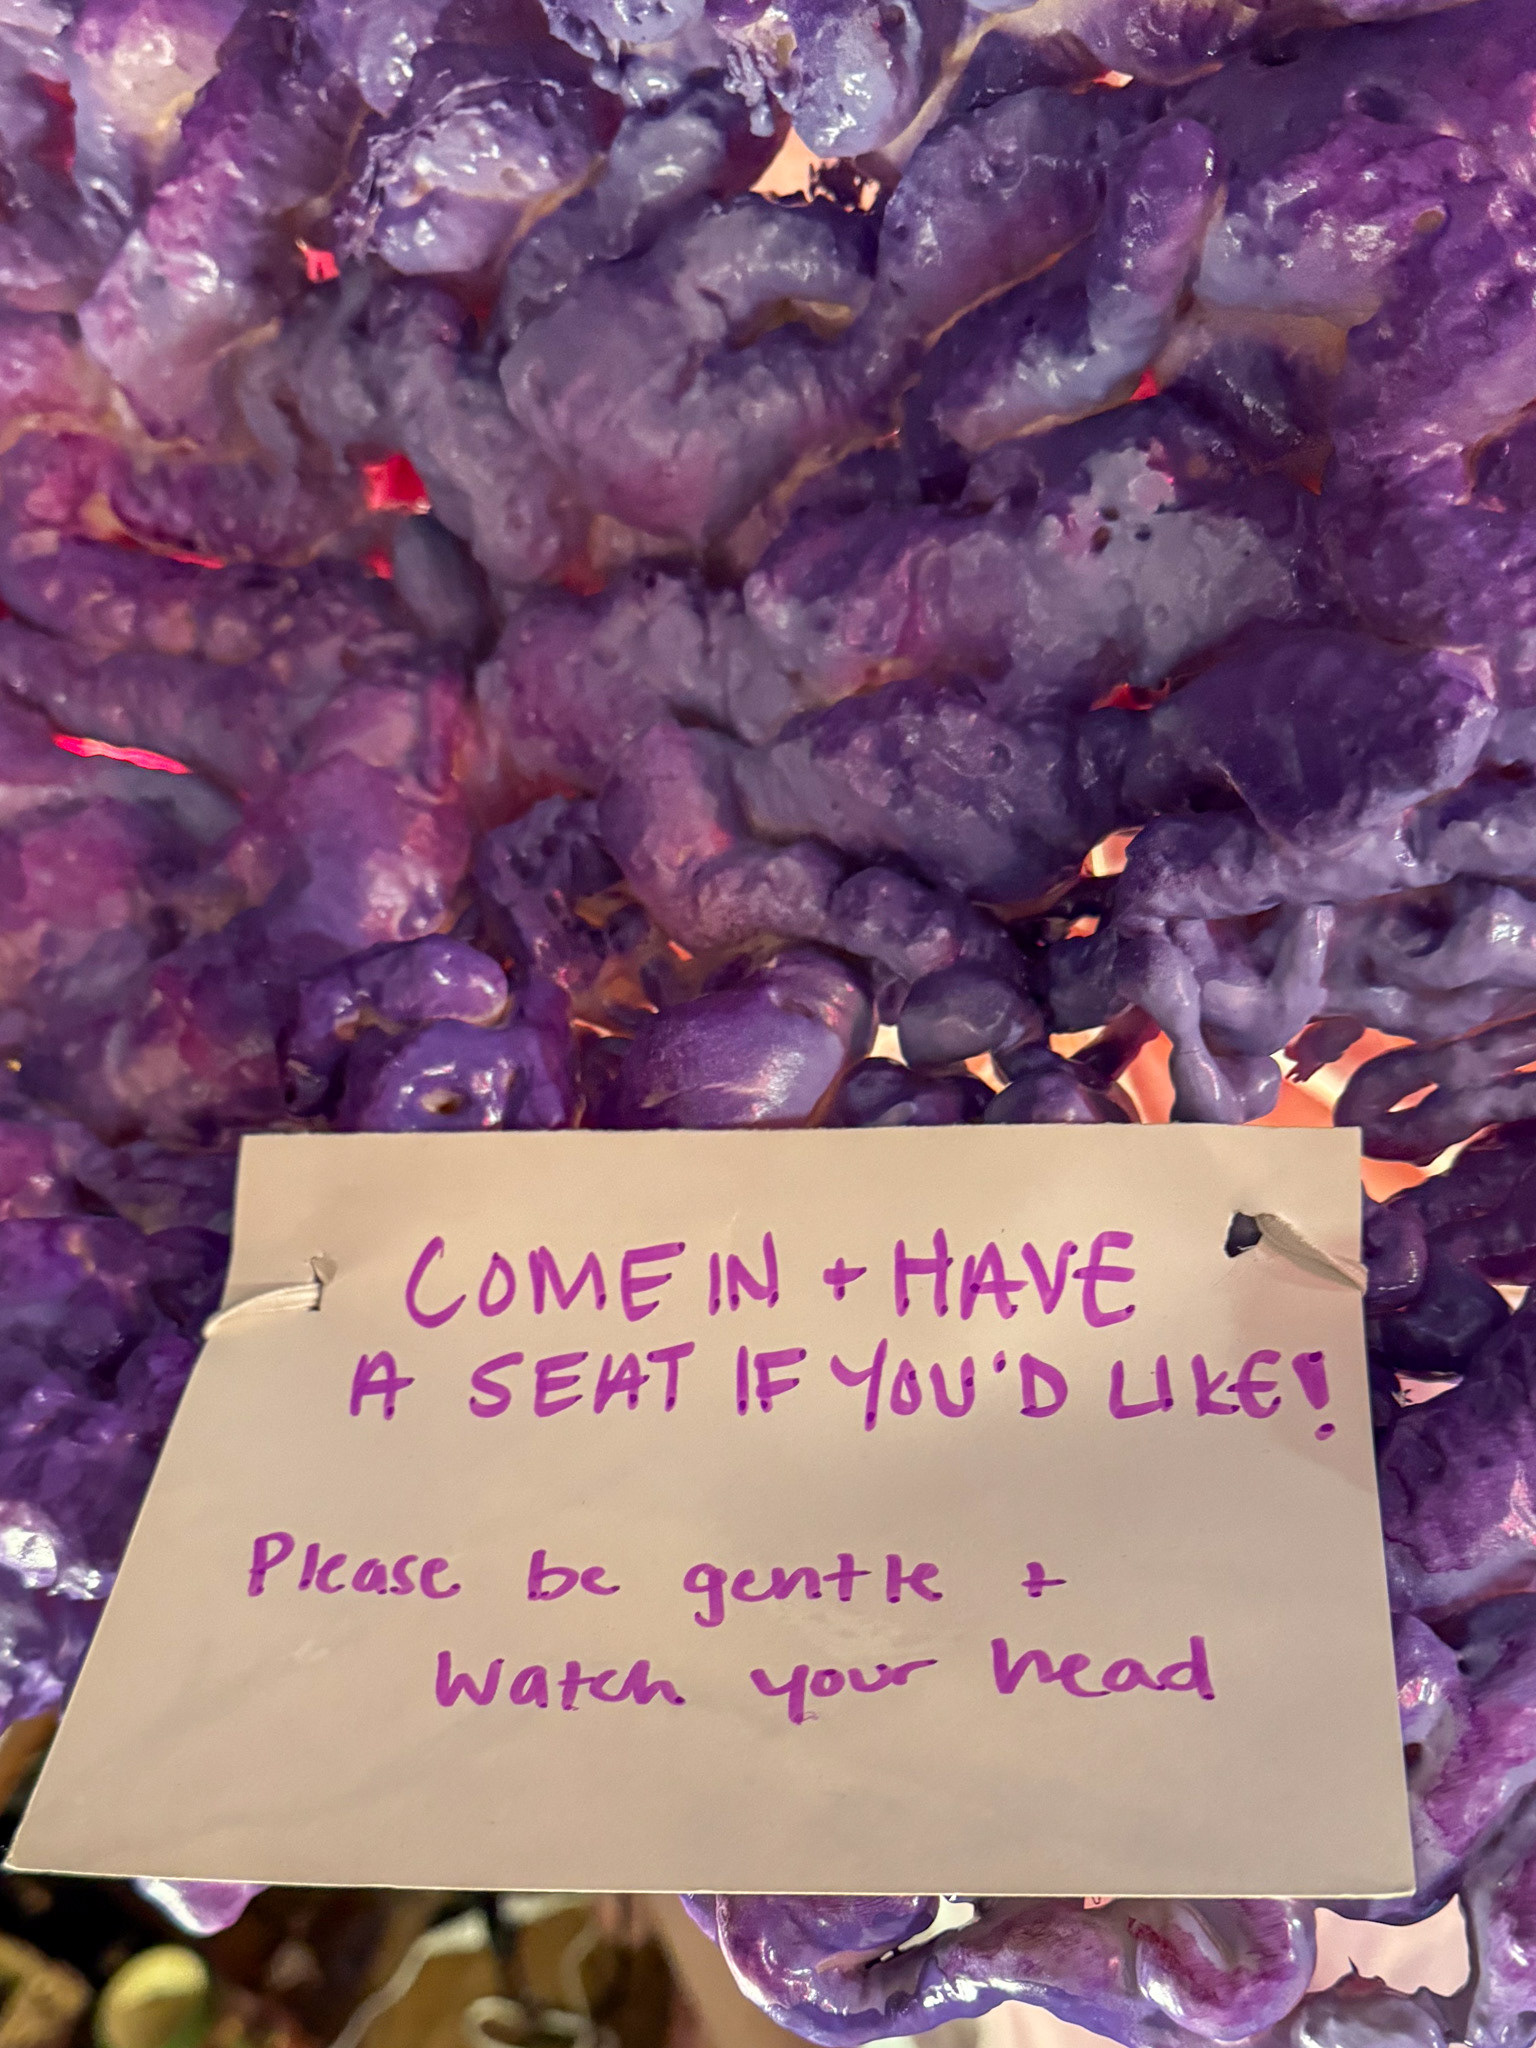 COME IN + HAVE
A SEAT IF YOU'D LIKE!
Please be gentle +
Watch your head